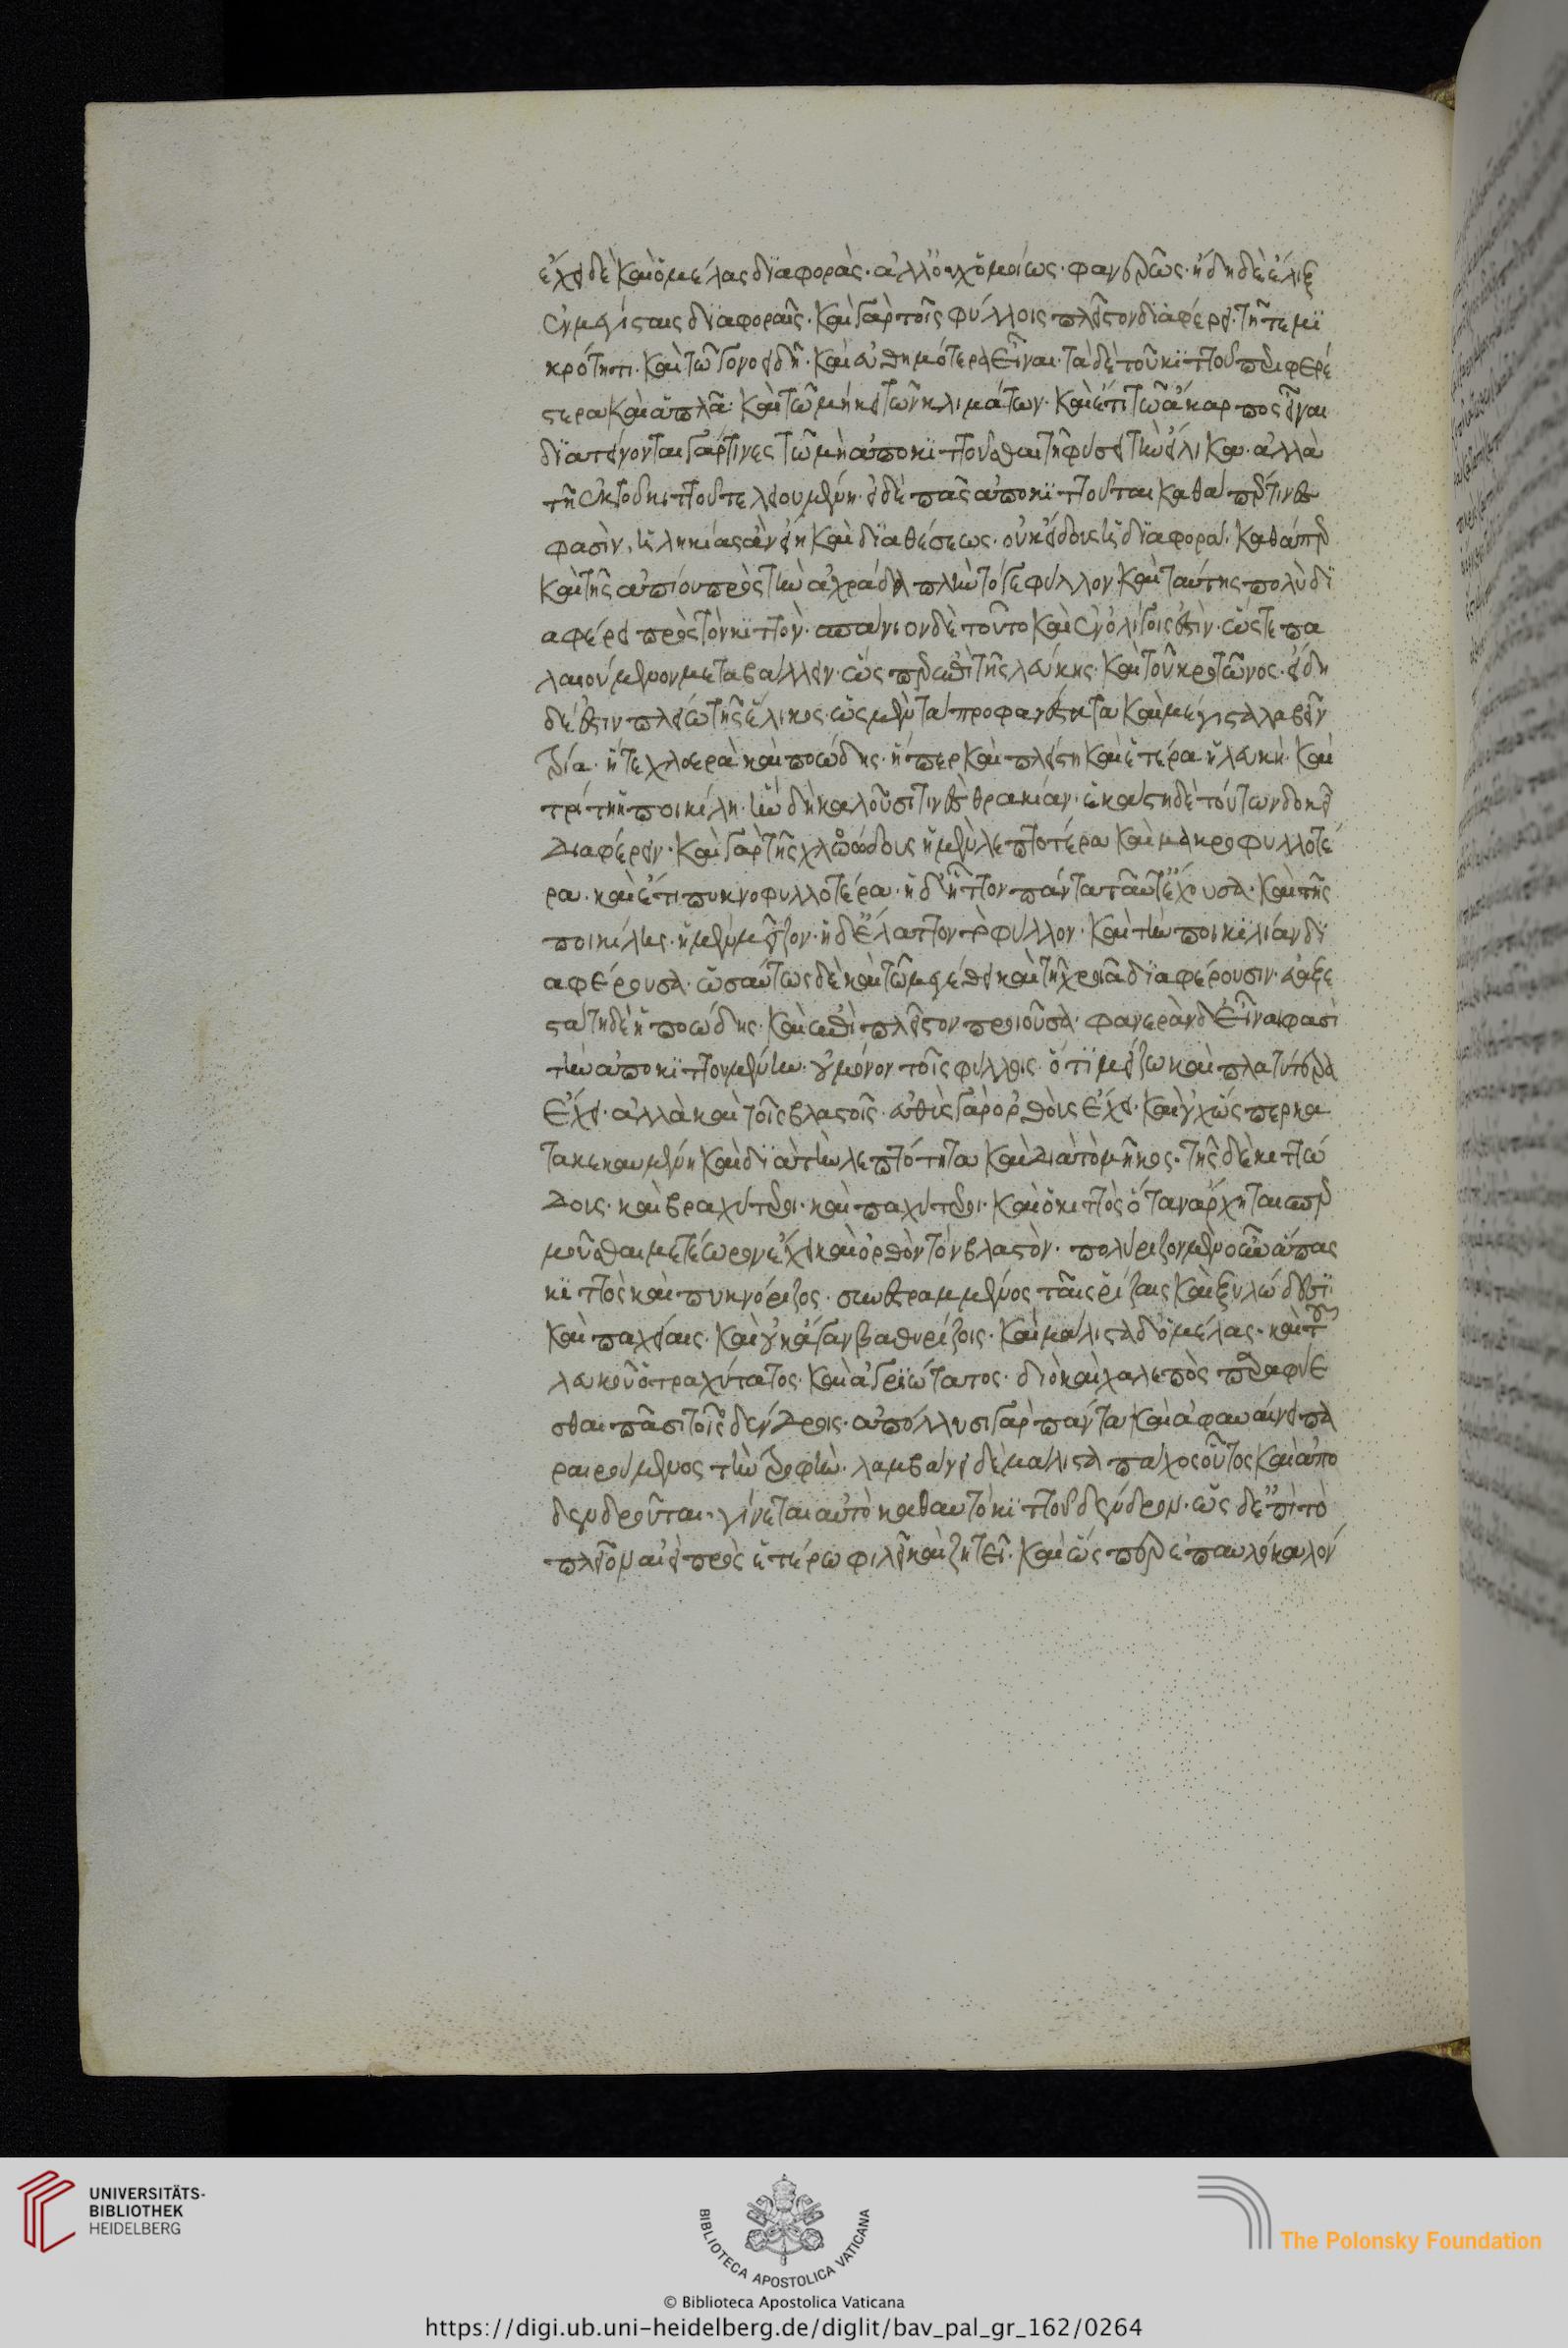 ἔχει δὲ καὶ ὁ μέλας διαφορὰς· ἀλλ' οὐχ ὁμοίως· φανερῶς· ἤδη δὲ ἕλιξ
ἐν μεγίσταις διαφοραῖς· καὶ γὰρ τοῖς φύλλοις πλεῖστον διαφέρει· τῆ τε μι
κρότητι· καὶ τῶ γονοειδῆ· καὶ εὐθημότερα εἶναι· τὰ δὲ τοῦ κιττοῦ περιφερέ
στερα καὶ ἁπλᾶ· καὶ τῶ μήκει τῶν κλιμάτων· καὶ ἔτι τῶ ἄκαρπος εἶναι
διατείνονται γάρ τινες τῶ μὴ ἀποκιττοῦσθαι τῆ φύσει τὴν ἕλικα· ἀλλὰ
τῆ ἐκ τοῦ κιττοῦ τελειουμένη· εἰ δὲ πᾶσ ἀποκιττοῦται καθάπερ τινὲς
φασὶν· ἡληκίας ἂν εἴη καὶ διαθέσεως· οὐκ εἴδους ἡ διαφορά· καθάπερ
καὶ τῆς ἀπίου πρὸς τὴν ἀχράδα πλὴν τό γε φύλλον καὶ ταύτης πολὺ δι
αφέρει πρὸς τὸν κιττὸν· σπάνιον δὲ τοῦτο καὶ ἐν ὀλίγοις ἐστὶν· ὥστε πα
λαιούμενον μεταβάλλειν· ὥσπερ ἐπὶ τῆς λεύκης· καὶ τοῦ κροτῶνος· εἴδη
δέ ἐστιν πλείω τῆς ἕλικος· ὡς μὲν τὰ προφανέστατα καὶ μέγιστα λαβεῖν
τρία· ἥ τε χλοερὰ καὶ ποώδης· ἥπερ καὶ πλείστη καὶ ἑτέρα ἡ λευκή· καὶ
τρίτη ἡ ποικίλη· ἣν δὴ καλοῦσί τινες θρακίαν· ἑκάστη δὲ τούτων δοκεῖ
διαφέρειν· καὶ γὰρ τῆς χλοώδους ἡ μὲν λεπτοτέρα καὶ μακροφυλλοτέ
ρα· καὶ ἔτι πυκνοφυλλοτέρα· ἡ δ' ἧττον πάντα ταῦτ' ἔχουσα· καὶ τῆς
ποικίλης· ἡ μὲν μεῖζον· ἡ δ' ἔλαττον τὸ φύλλον· καὶ τὴν ποικιλίαν δι
αφέρουσα· ὡσαύτως δὲ καὶ τῶ μεγέθει καὶ τῆ χροιᾶ διαφέρουσιν· εὐαξε
στάτη δὲ ἡ ποώδης· καὶ ἐπὶ πλεῖστον προιοῦσα· φανερὰν δ' εἶναι φασὶ
τὴν ἀποκιττουμένην· οὐ μόνον τοῖς φύλλοις· ὅτι μείζω καὶ πλατύτερα
ἔχει· ἀλλὰ καὶ τοῖς βλαστοῖς· εὐθὺς γὰρ ὀρθοὺς ἔχει· καὶ οὐχ ὥσπερ κα
τακεκαμμένη καὶ διὰ τὴν λεπτότητα καὶ διὰ τὸ μῆκος· τῆς δὲ κιττώ
δους· καὶ βραχύτεροι· καὶ παχύτεροι· καὶ ὁ κιττὸς ὅταν ἄρχηται σπερ
μοῦσθαι μετέωρον ἔχει καὶ ὀρθὸν τὸν βλαστὸν· πολύριζον μὲν οὖν ἅπας
κιττὸς καὶ πυκνόριζος· συνεστραμμένος ταῖς ῥίζαις καὶ ξυλώδεσι
καὶ παχείαις· καὶ οὐκ ἄγαν βαθυρίζοις· καὶ μάλιστα δ' ὁ μέλας· καὶ τοῦ
λευκοῦ ὁ τραχύτατος· καὶ ἀγριώτατος· διὸ καὶ χαλεπὸς παραφύε
σθαι πᾶσι τοῖς δένδροις· ἀπόλλυσι γὰρ πάντα καὶ ἀφαυαίνει πα
ραιρούμενος τὴν τροφὴν· λαμβάνει δὲ μάλιστα πάχος οὗτος καὶ ἀπο
δενδροῦται· γίνεται αὐτὸ καθαυτὸ κιττοῦ δένδρον· ὡς δ' ἐπὶ τὸ
πλεῖον αἰεὶ πρὸς ἑτέρω φιλεῖ καὶ ζητεῖ· καὶ ὥσπερ ἐπαυλόκαυλον
UNIVERSITÄTS-
BIBLIOTHEK
HEIDELBERG
BIBLIOTECA APOSTOLICA VATICANA
The Polonsky Foundation
© Biblioteca Apostolica Vaticana
https://digi.ub.uni-heidelberg.de/diglit/bav_pal_gr_162/0264